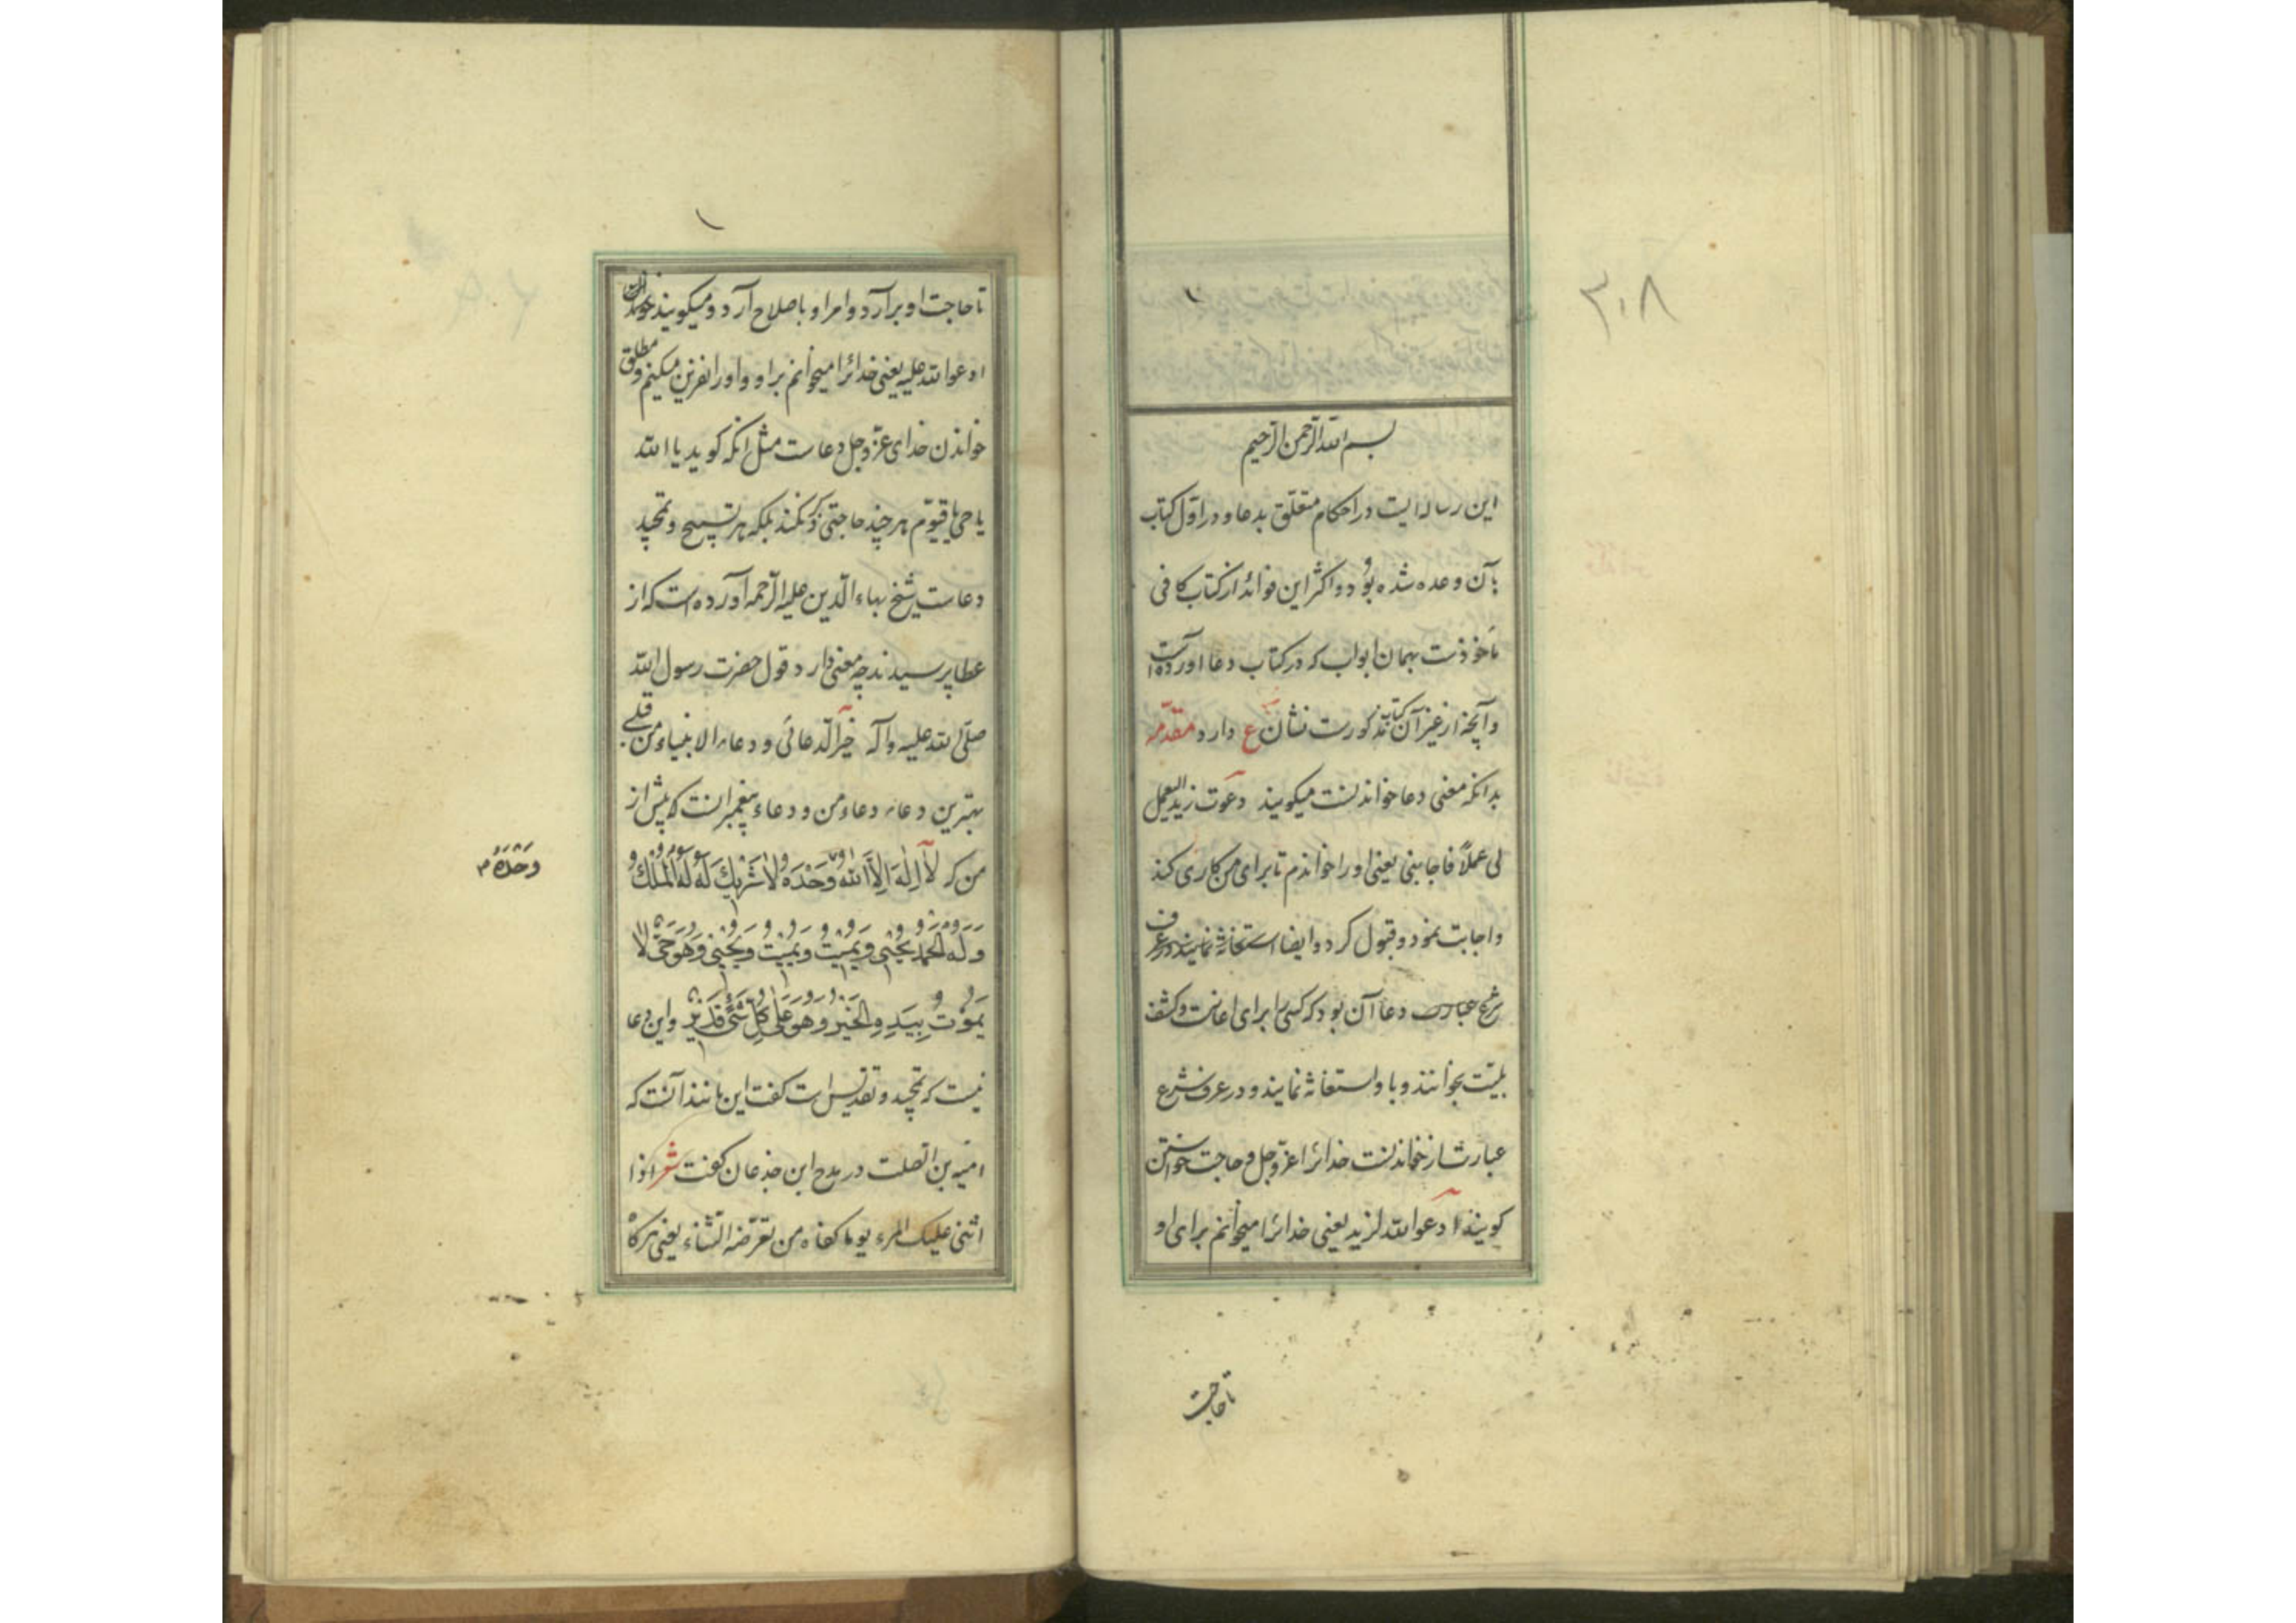 ۳۰۸
بسم الله الرحمن الرحیم
این رساله ایست در احکام متعلق بدعا و در اول کتاب
بآن وعده شده بود و اکثر این فوائد از کتاب کافی
ماخوذست بهمان ابواب که در کتاب دعا آورده است
و آنچه از غیر آن کتاب مذکورست نشان ع دارد مقدّمه
بدانکه معنی دعا خواندنست میگویند دعوت زید لیعمل
لی عملاً فاجابنی یعنی او را خواندم تا برای من کاری کند
و اجابت نمود و قبول کرد و ایضا استغاثه نمایند و در عرف
شرع عبارت دعا آن بود که کسی را برای اعانت و کشف
بلیّت بخوانند و باو استغاثه نمایند و در عرف شرع
عبارتست از خواندنست خدائرا عزّ و جلّ و حاجت خواستن
کویند ادعو الله لزید یعنی خدائرا میخوانم برای او
تا حاجت
۱
تا حاجت او برآرد و امر او باصلاح آرد و میکویند
ادعوا الله علیه یعنی خدائرا میخوانم بر او و او را نفرین میکنم و مطلق
خواندن خدای عزّ و جل دعاست مثل انکه کوید یا الله
یا حی یا قیّوم هر چند حاجتی ذکر نکند بلکه هر تسبیح و تمجید
دعاست شیخ بهاء الدّین علیه الرّحمه آورده است که از
عطا پرسیدند چه معنی دارد قول حضرت رسول الله
صلّی الله علیه و آله خیر الدّعا دعائی و دعاء الانبیاء من قبلی
بهترین دعاء دعاء من و دعاء پیغمبرانست که پیش از
من که لَا اِلٰهَ اِلَّا اللهُ وَحْدَهُ لَا شَرِیکَ لَهُ لَهُ الْمُلْکُ
وَحْدَهُ ۳
وَلَهُ الْحَمْدُ یُحْیِی وَیُمِیتُ وَیُمِیتُ وَیُحْیِی وَهُوَ حَیٌّ لَا
یَمُوْتُ بِیَدِهِ الْخَیْرُ وَهُوَ عَلٰی کُلِّ شَیْءٍ قَدِیْرٌ و این دعا
نیست که تمجید و تقدیس است کفت این مانند آنست که
امیّه بن الصلت در مدح ابن جذعان کفت شعر اذا
اثنی علیک المرء یوما کفاه من تعرّضه الثناء یعنی هرکاه